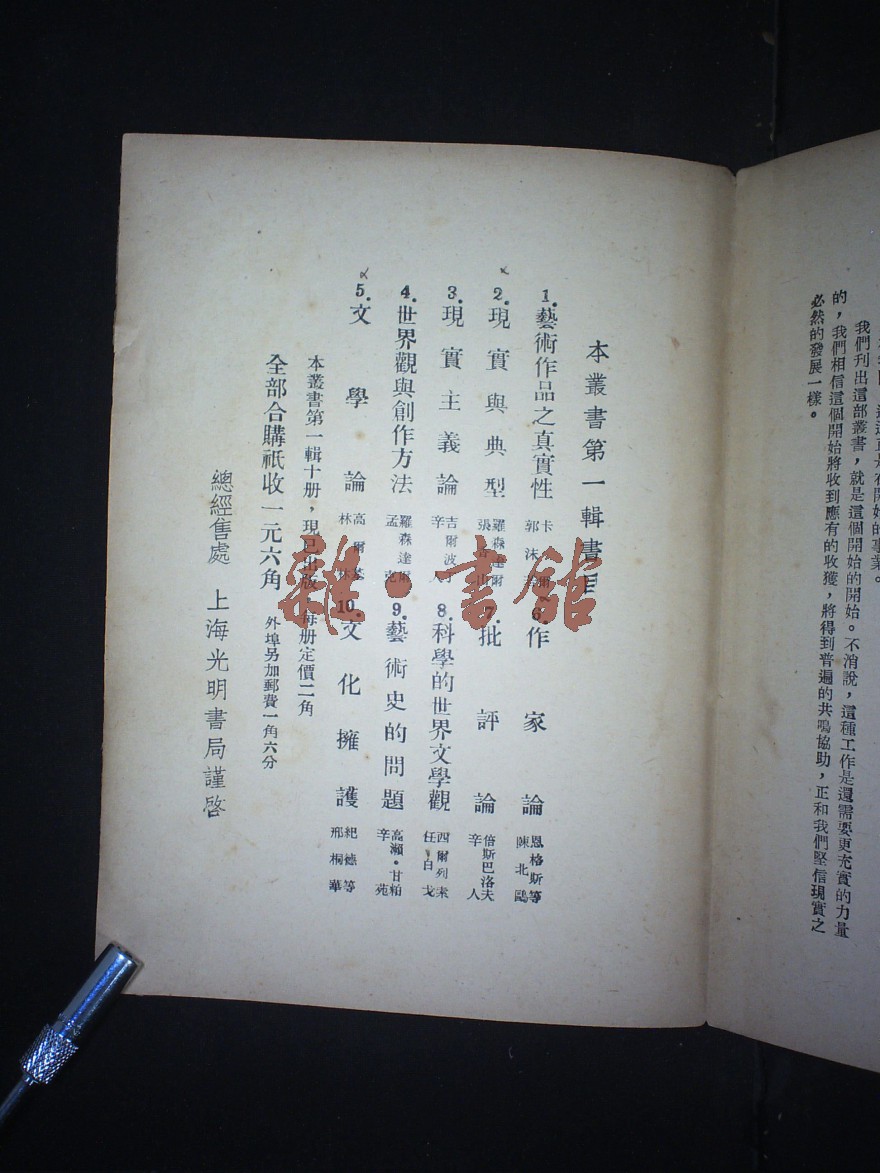 我們刊出這部叢書，就是這個開始的開始。不消說，這種工作是還需要更充實的力量
的，我們相信這個開始將收到應有的收獲，將得到普遍的共鳴協助，正和我們堅信現實之
必然的發展一樣。
本叢書第一輯書目
1.藝術作品之真實性 卡爾 郭沫
6.作家論 恩格斯等 陳北鷗
2.現實與典型 羅森達爾 張 山
7.批評論 倍斯巴洛夫 辛人
3.現實主義論 吉爾波丁 辛人
8.科學的世界文學觀 西爾列索 任白戈
4.世界觀與創作方法 羅森達爾 孟克
9.藝術史的問題 高瀨・甘粕 辛苑
5.文學論 高爾基 林林
10.文化擁護 紀德等 邢桐華
本叢書第一輯十册，現已出版，每册定價二角
全部合購祇收一元六角 外埠另加郵費一角六分
總經售處 上海光明書局謹啓
雜・書館